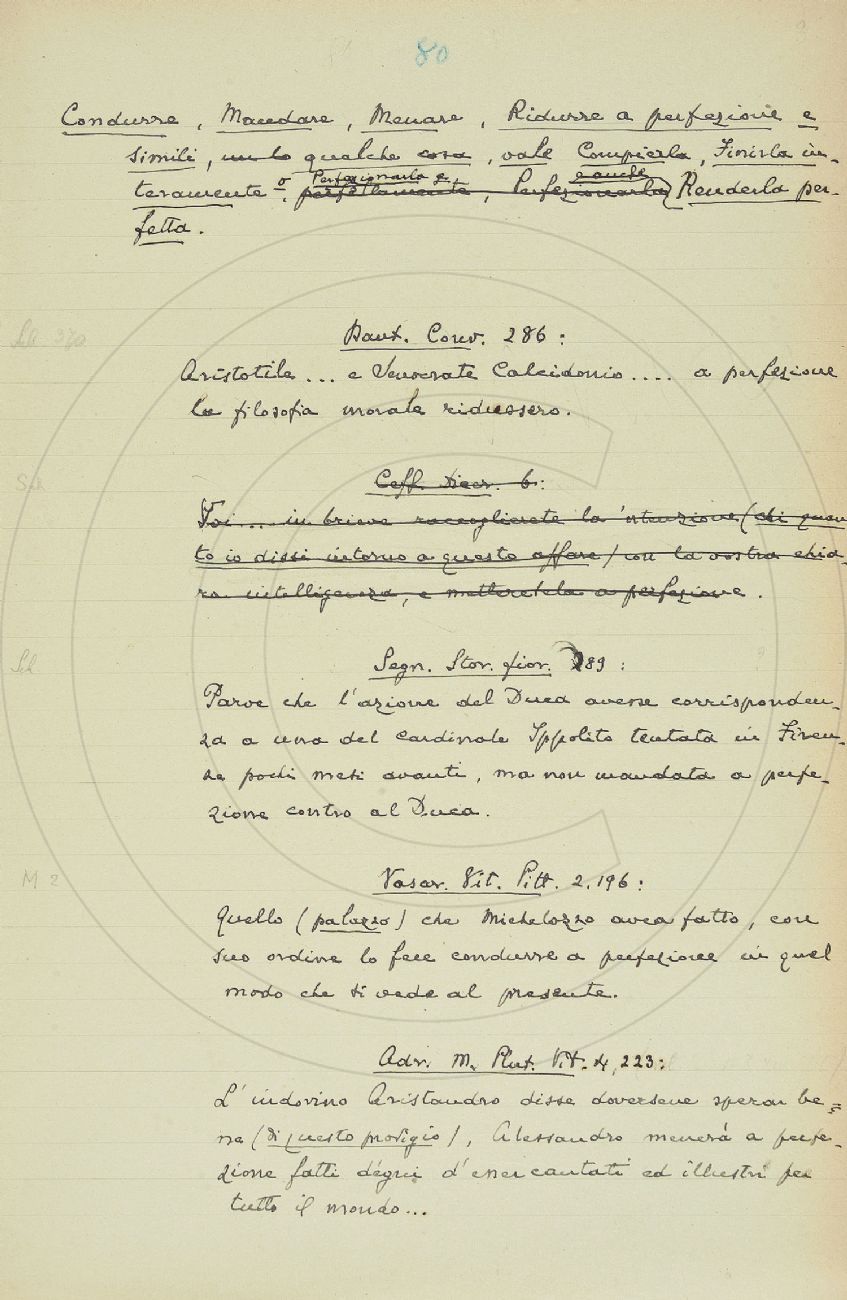 80
Condurre, Mandare, Menare, Ridurre a perfezione e
simili, un lo qualche cosa, vale Compierla, Finirla in-
teramente o Perfezionarla e, perfettamente, Perfezionarla e anche Renderla per-
fetta.
Dant. Conv. 286:
Aristotile ... e Senocrate Calcidonio .... a perfezione
la filosofia morale ridussero.
Ceff. Dicer. 6:
Voi ... in brieve raccoglierete la 'ntenzione (di quan
to io dissi intorno a questo affare) con la vostra chia-
ra intelligenza, e metteretela a perfezione.
Segn. Stor. fior. 289:
Parve che l'azione del Duca avesse corrisponden-
za a una del cardinale Ippolito tentata in Firen-
ze pochi mesi avanti, ma non mandata a perfe-
zione contro al Duca.
Vasar. Vit. Pitt. 2, 196:
Quello (palazzo) che Michelozzo avea fatto, con
suo ordine lo fece condurre a perfezione in quel
modo che si vede al presente.
Adr. M. Plut. Vit. 4, 223:
L'indovino Aristandro disse doversene sperar be-
ne (di questo prodigio), Alessandro menerà a perfe-
zione fatti degni d'esser cantati ed illustri per
tutto il mondo...
M 2